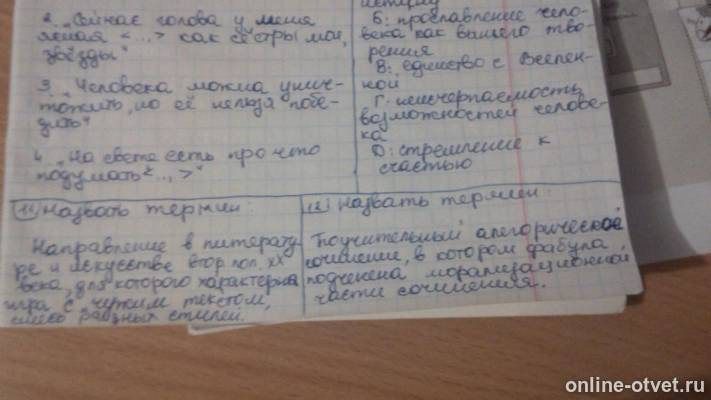 2. „Сейчас голова у меня
ясная <...> как сёстры мои,
звёзды"
3. „Человека можна унич-
тожить, но её нельзя побе-
дить"
4. „На свете есть про что
подумать<...>"
Б: прославление чело-
века как высшего тво-
рения
В: единство с Вселен-
ной
Г: неисчерпаемость
возможностей челове-
ка
D: стремление к
счастью
11) Назвать термин:
Направление в литерату
ре и искусстве втор пол. XX
века, для которого характерна
игра с чужим текстом,
разных стилей.
12) Назвать термин:
Поучительный алегорическое
сочинение, в котором фабула
подченена морализационной
части сочинения.
online-otvet.ru